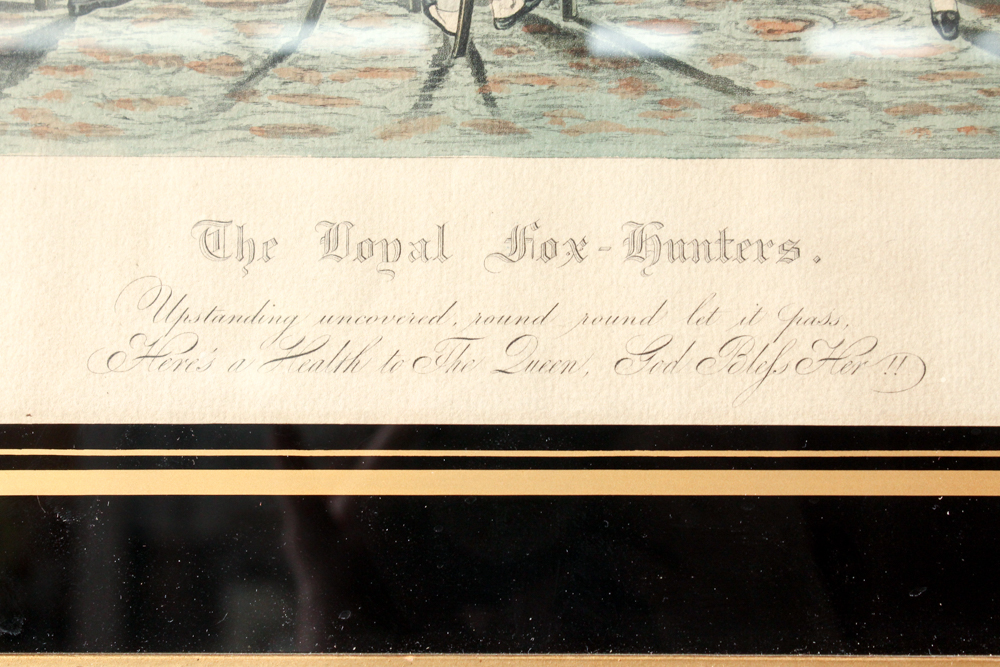 The Loyal Fox-Hunters.
Upstanding uncovered, round round let it pass,
Here's a Health to The Queen, God Bleſs Her!!